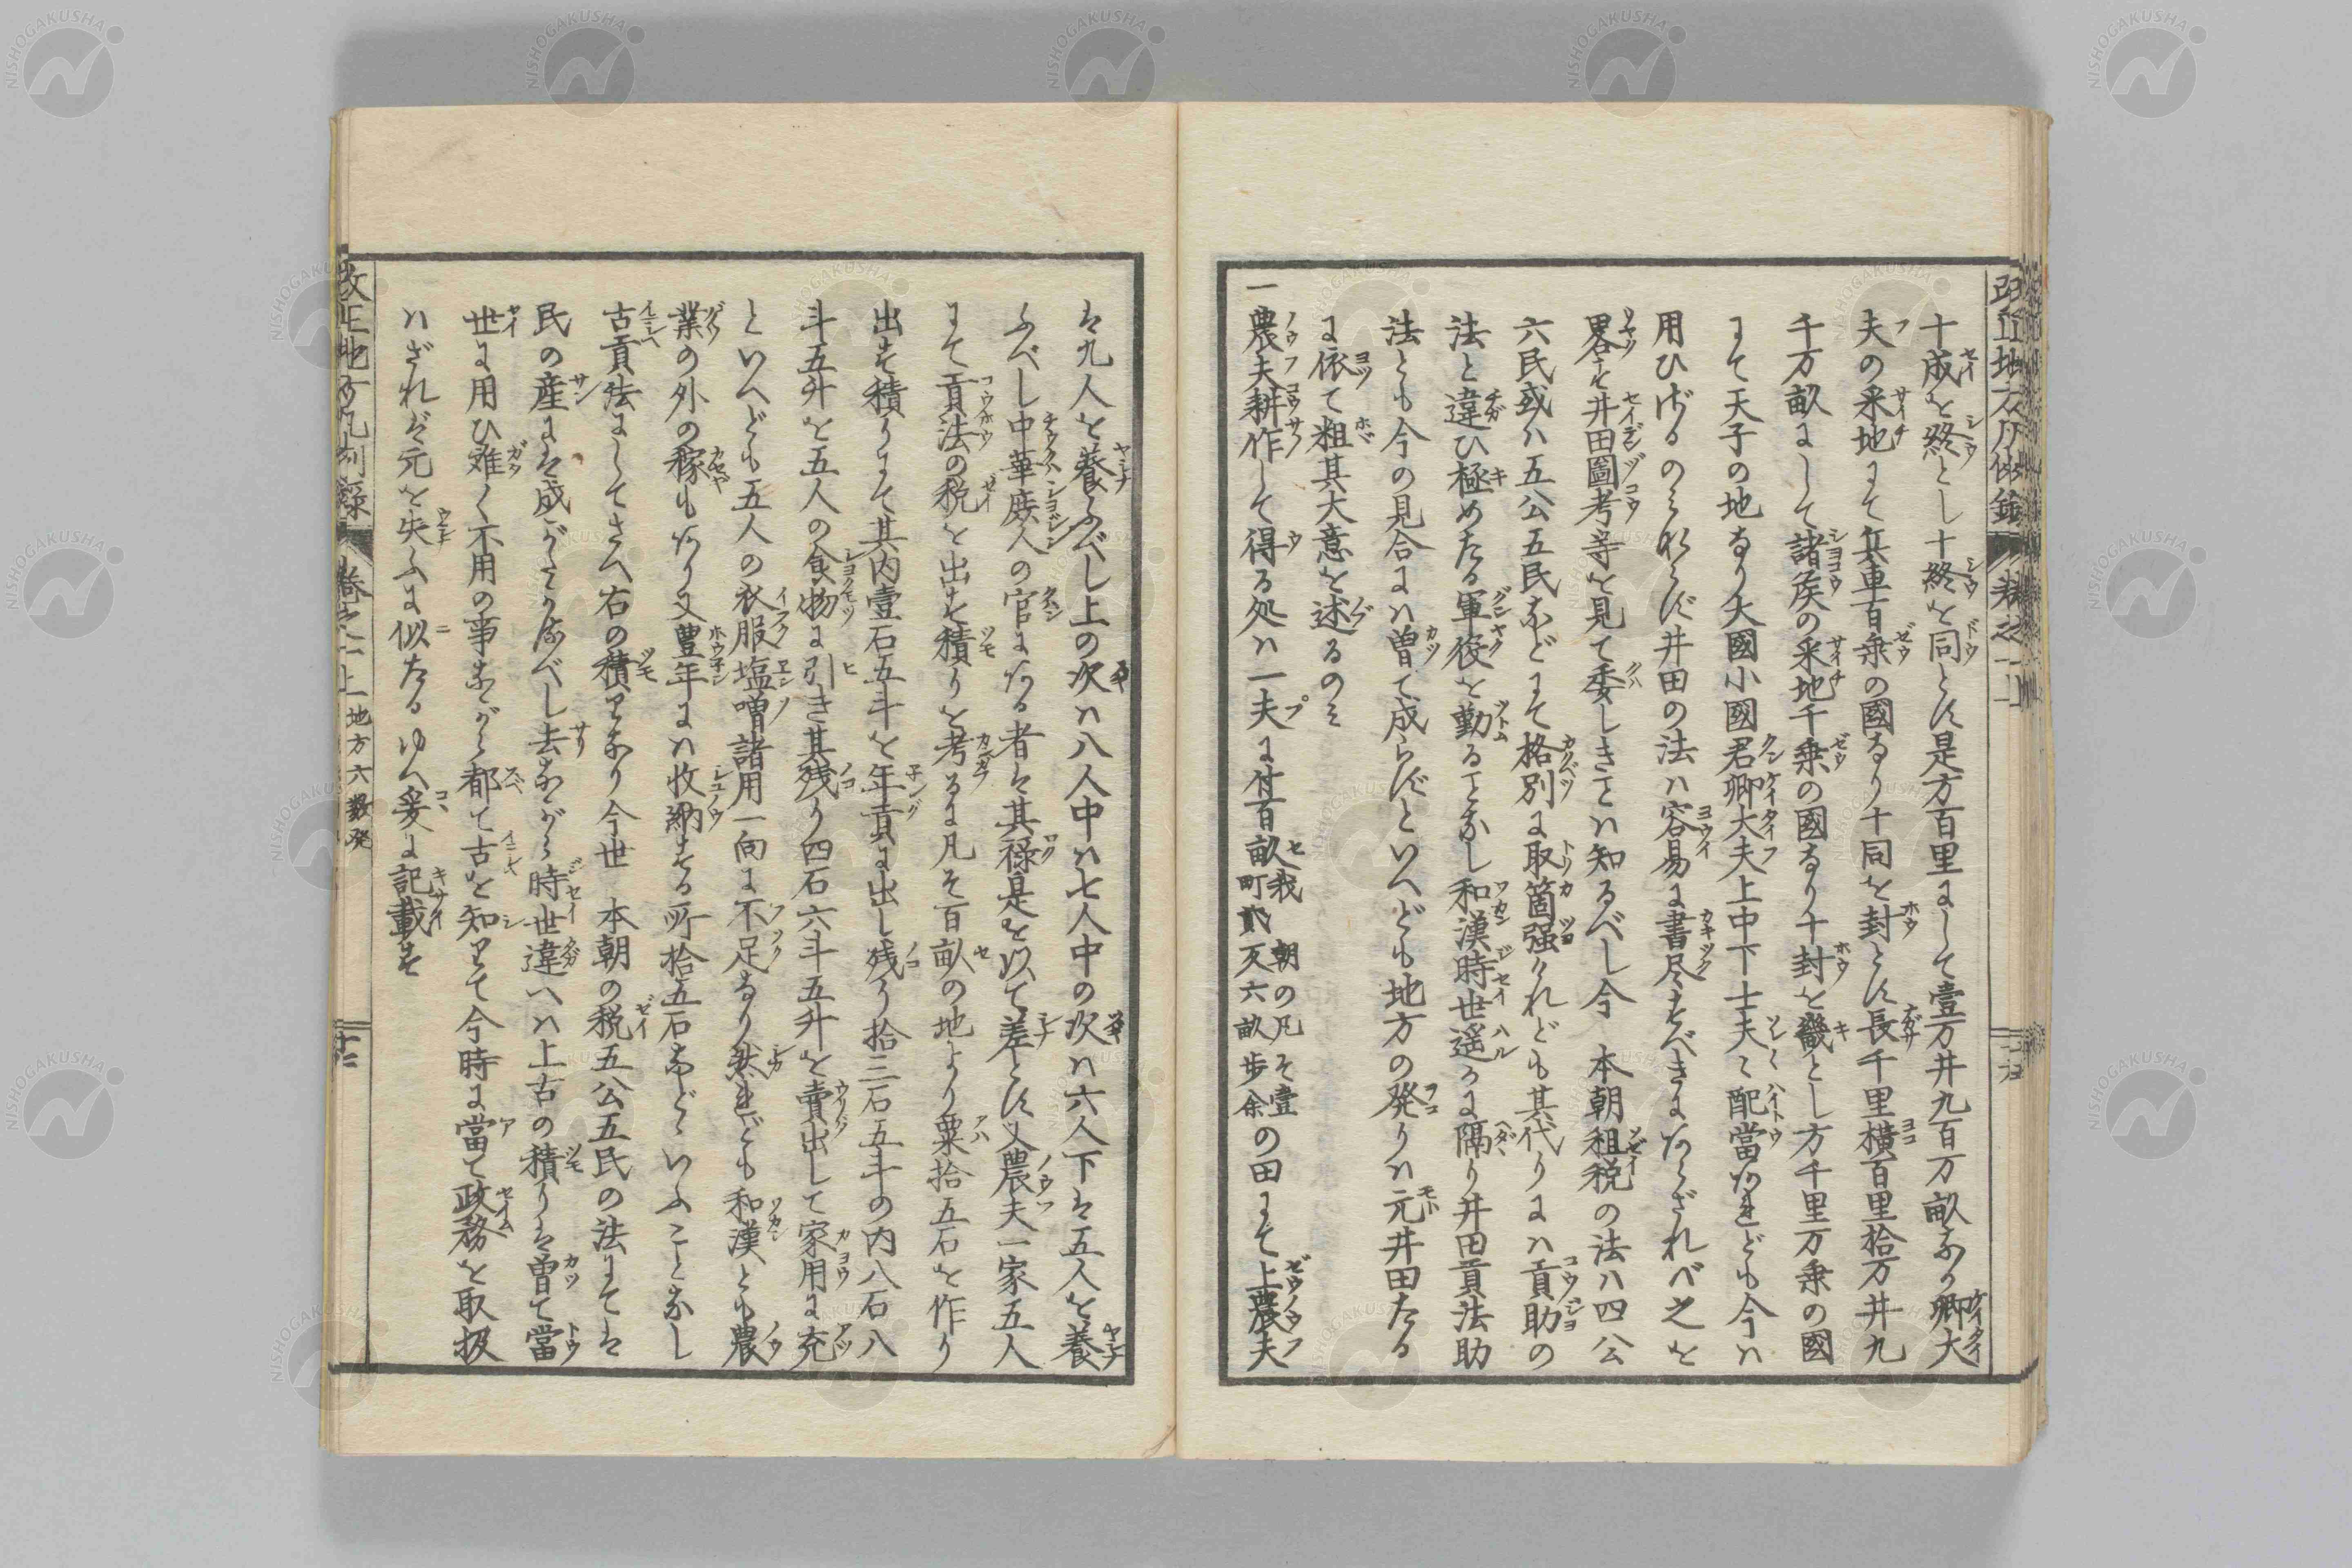 十成を終とし十終を同とす是方百里にして壹万井九百万畝なり卿大
夫の采地にて兵車百乗の國なり十同を封とす長千里横百里拾万井九
千万畝にして諸侯の采地千乗の國なり十封を畿とし方千里万乗の國
にて天子の地なり大國小國君卿大夫上中下士夫〻配當あれども今ハ
用ひざるのみならず井田の法ハ容易に書尽すべきにあらざれバ之を
畧す井田圖考等を見て委しきことハ知るべし今　本朝租税の法ハ四公
六民或ハ五公五民などにて格別に取箇强けれども其代りにハ貢助の
法と違ひ極めたる軍役を勤ることなし和漢時世遥かに隔り井田貢法助
法とも今の見合にハ曽て成らずといへども地方の発りハ元井田たる
に依て粗其大意を述るのミ
一農夫耕作して得る処ハ一夫に付百畝我　朝の凡そ壹町貳反六畝歩余の田にて上農夫
は九人を養ふべし上の次ハ八人中ハ七人中の次ハ六人下は五人を養
ふべし中華庻人の官にある者は其禄是を以て差とす又農夫一家五人
にて貢法の税を出す積りを考るに凡そ百畝の地より粟拾五石を作り
出す積りにて其内壹石五斗を年貢に出し残り拾三石五斗の内八石八
斗五升を五人の食物に引き其残り四石六斗五升を賣出して家用に充
といへども五人の衣服塩噌諸用一向に不足なり然れども和漢とも農
業の外の稼もあり又豊年にハ收納する所拾五石などゝいふことなし
古貢法にしてさへ右の積りなり今世　本朝の税五公五民の法にては
民の産には成がたかるべし去ながら時世違へハ上古の積りは曽て當
世に用ひ难く不用の事ながら都て古を知りて今時に當て政務を取扱
ハざれば元を失ふに似たるゆへ爰に記載す
改正地方凡例録　巻之一上　地方六数発　十二